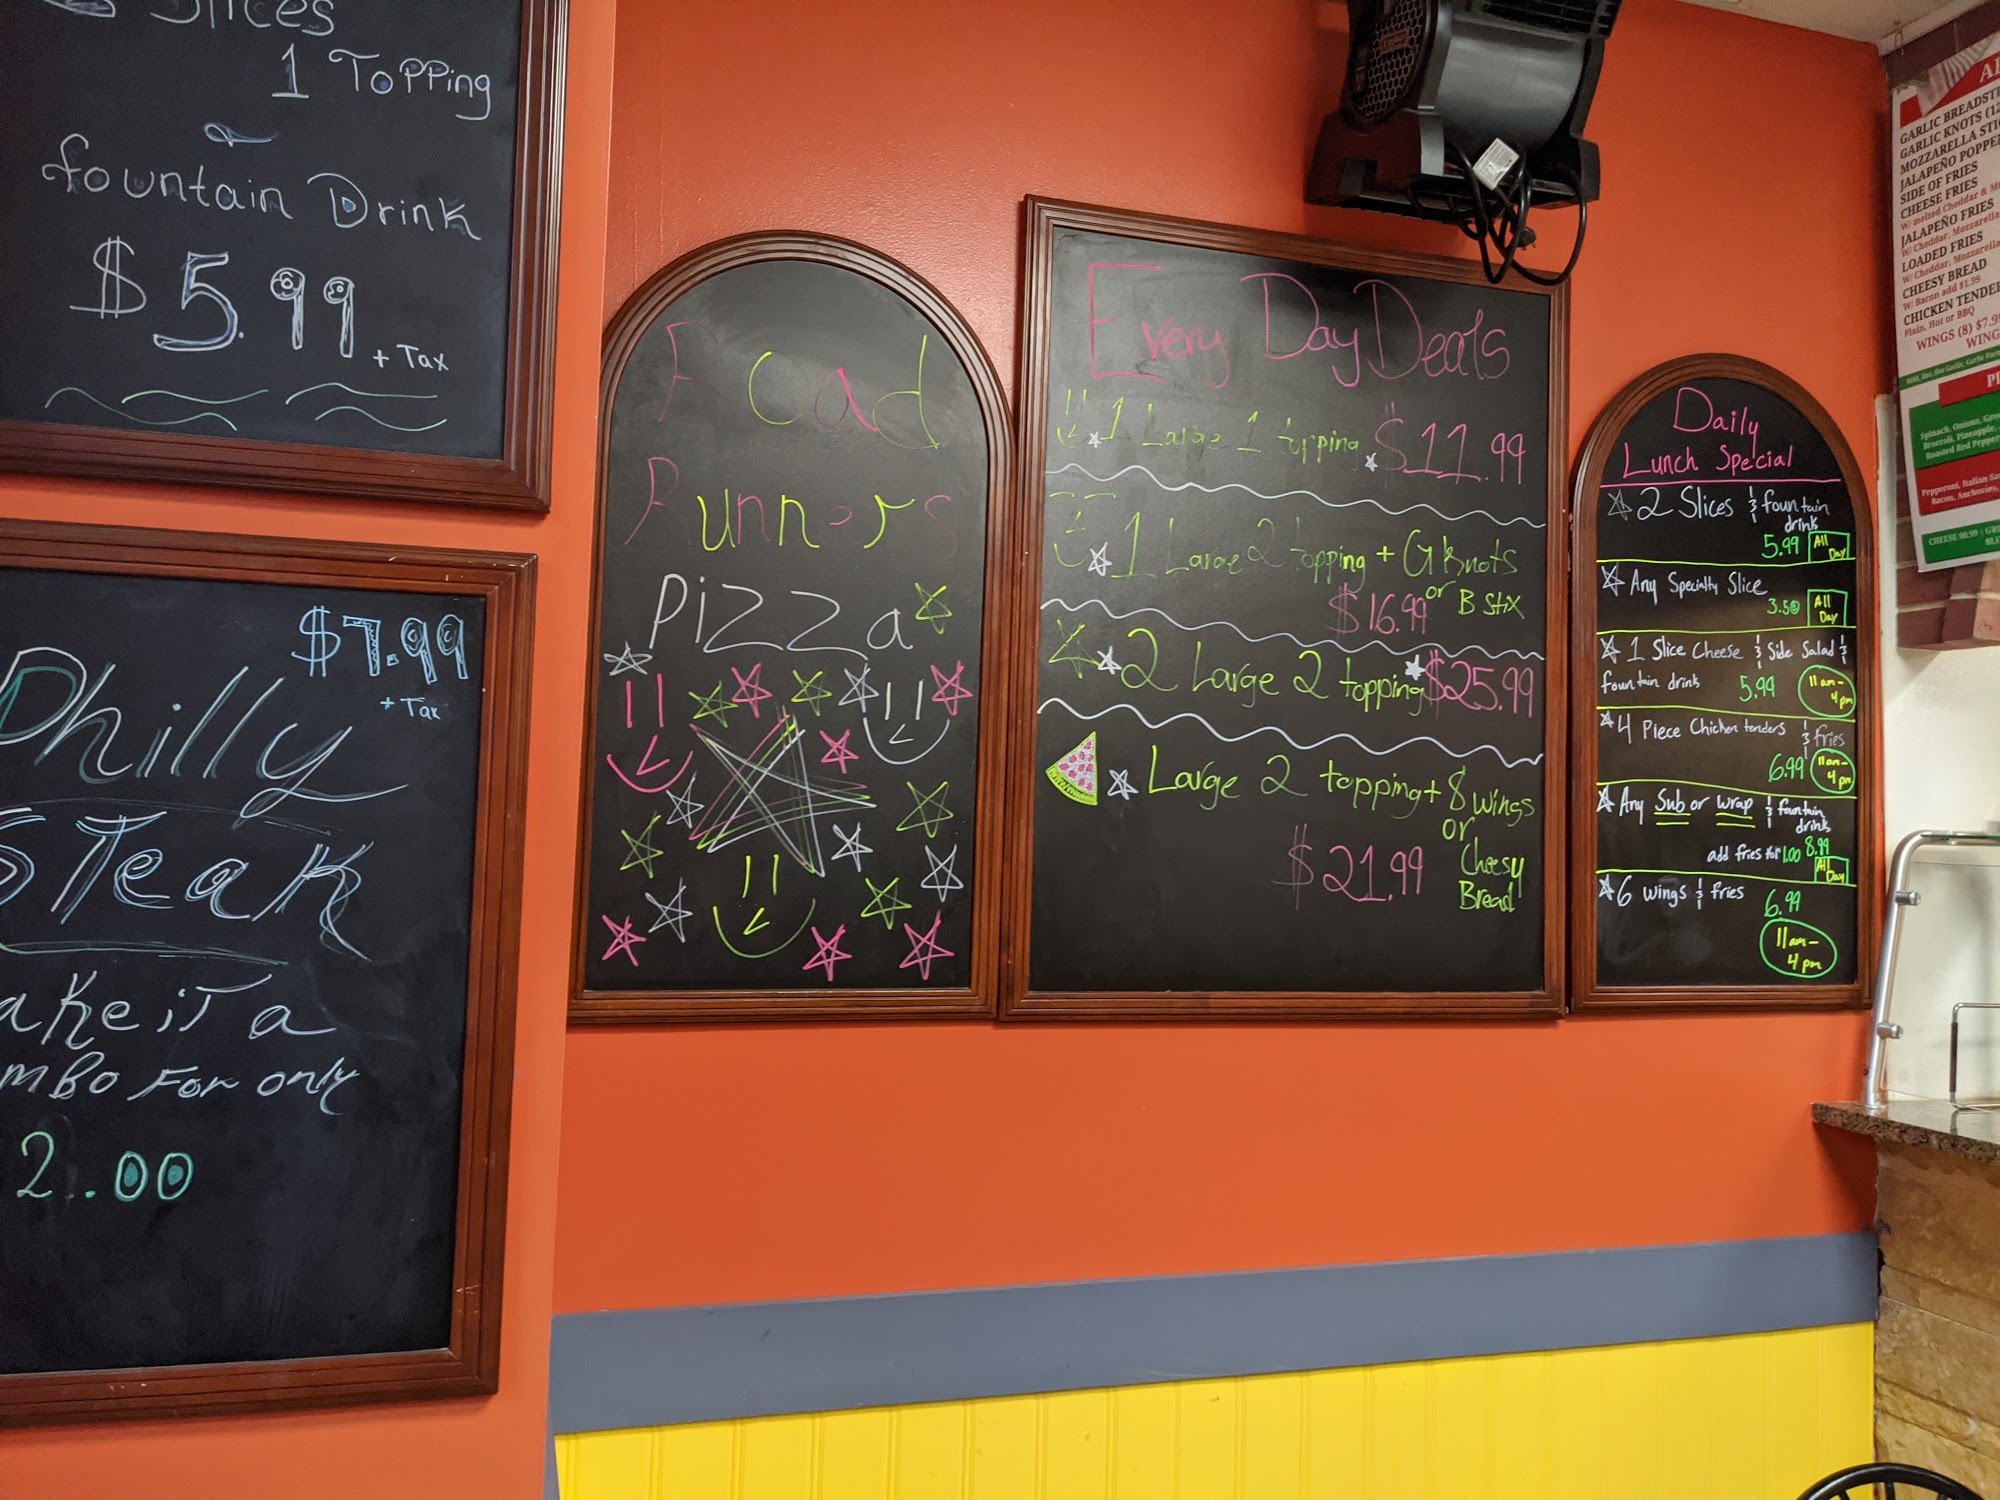 Slices
1 Topping
fountain Drink
$5.99 + Tax
$7.99
+ Tax
Philly
STeak
it a
For only
2.00
Road
Runners
Pizza
Every Day Deals
1 Large 1 topping $11.99
1 Large 2 topping + G Knots
or B Stix
$16.99
2 Large 2 topping $25.99
Large 2 topping + 8 wings
or
Cheesy
Bread
$21.99
Daily
Lunch Special
2 Slices & fountain
drink
5.99 All
Day
Any Specialty Slice
3.50 All
Day
1 Slice Cheese & Side Salad &
fountain drink 5.99 11am-
4pm
4 Piece Chicken tenders
& fries
6.99 11am-
4pm
Any Sub or Wrap & fountain
drinks
add fries for 1.00 8.99
All
Day
6 wings & fries 6.99
11am-
4pm
GARLIC
GARLIC KNOTS
MOZZARELLA
JALAPEÑO
SIDE OF FRIES
CHEESE FRIES
W/ melted Cheddar &
JALAPEÑO FRIES
W/ Cheddar,
LOADED FRIES
W/ Cheddar,
CHEESY BREAD
W/ Bacon add $1.59
CHICKEN
Plain, Hot or BBQ
WINGS (8)
Spinach, Onions,
Broccoli, Pineapple,
Roasted Red
Pepperoni, Italian
Bacon, Anchovies,